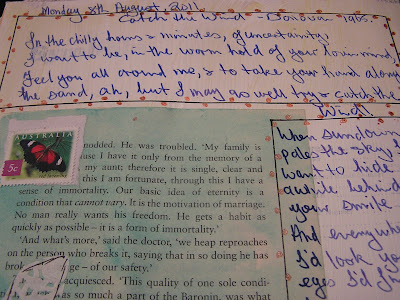 Monday 8th, August, 2011
Catch the Wind - Donovan 1965
In the chilly hours & minutes, of uncertainty,
I want to be, in the warm hold of your loving mind,
Feel you all around me, & to take your hand along
the sand, ah, but I may as well try & catch the
Wind!
AUSTRALIA
5c
nodded. He was troubled. 'My family is
use I have it only from the memory of a
my aunt; therefore it is single, clear and
this I am fortunate, through this I have a
sense of immortality. Our basic idea of eternity is a
condition that cannot vary. It is the motivation of marriage.
No man really wants his freedom. He gets a habit as
quickly as possible – it is a form of immortality.'
'And what's more,' said the doctor, 'we heap reproaches
on the person who breaks it, saying that in so doing he has
brok ge – of our safety.'
acquiesced. 'This quality of one sole condi-
was so much a part of the Baronin, was what
When sundown
pales the sky, I
want to hide
awhile behind
your smile
And everywhe
I'd look you
eyes I'd fin